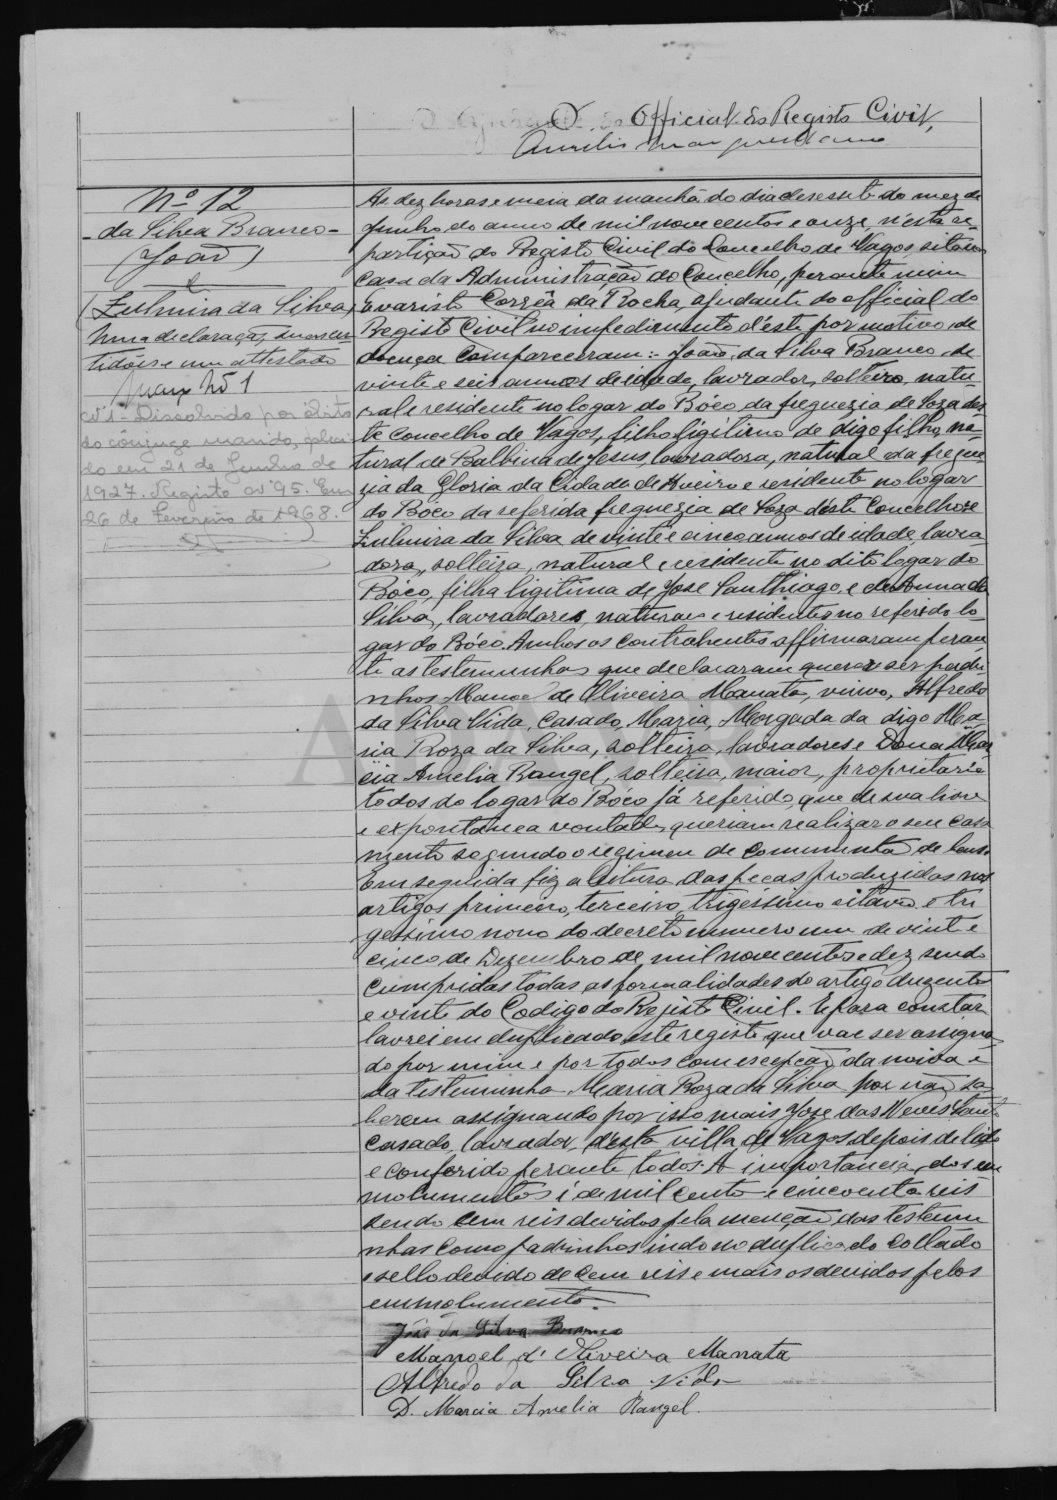 O Official do Registo Civil,
Nº 12
da Silva Branco
(João)
e
(Zulmira da Silva)
Uma declaração, duas cer
tidões e um attestado
Maço Nº 1
Nº 1 - Dissolvido por óbito
do cônjuge marido, faleci
do em 21 de Junho de
1927. Registo nº 95. Em
26 de Fevereiro de 1968.
As dez horas e meia da manhã do dia desesete do mez de
Junho do anno de mil nove centos e onze, n'esta re-
partição do Registo Civil do Concelho de Vagos, sita na
Casa da Administração do Concelho, perante mim
Evaristo Corrêa da Rocha, ajudante do official do
Registo Civil no impedimento d'este por motivo de
doença compareceram: João da Silva Branco, de
vinte e seis annos de idade, lavrador, solteiro, natu-
ral e residente no logar do Bóco da freguezia de Soza des
te concelho de Vagos, filho ligitimo de digo filho na-
tural de Balbina de Jesus, lavradora, natural da fregue
zia da Gloria da Cidade de Aveiro e residente no logar
do Bóco da referida freguezia de Soza d'este Concelho e
Zulmira da Silva de vinte e cinco annos de idade, lavra
dora, solteira, natural e residente no dito logar do
Bóco, filha ligitima de José Santhiago e de Anna da
Silva, lavradores, naturaes e residentes no referido lo-
gar do Bóco. Ambos os contrahentes affirmaram peran
te as testemunhas que declararam querer ser padri
nhos Manoel de Oliveira Manata, viuvo, Alfredo
da Silva Vida, casado, Maria Morgada da digo Ma
ria Roza da Silva, solteira, lavradores e Dona Mar
cia Amelia Rangel, solteira, maior, proprietaria
todos do logar do Bóco já referido, que de sua livre
e expontanea vontade queriam realizar o seu casa
mento segundo o regimen de communhão de bens.
Em seguida fiz a leitura das peças produzidas nos
artigos primeiro, terceiro, trigessimo oitavo e tri
gessimo nono do decreto numero um de vinte e
cinco de Dezembro de mil nove centos e dez, sendo
cumpridas todas as formalidades do artigo duzentos
e vinte do Codigo do Registo Civil. E para constar
lavrei em duplicado este registo que vae ser assigna
do por mim e por todos com excepção da noiva e
da testemunha Maria Roza da Silva por não sa
berem assignando por isto mais José das Neves
casado, lavrador, d'esta villa de Vagos depois de lido
e conferido perante todos. A importancia dos em
molumentos é de mil cento e cincoenta reis
sendo cem reis devidos pela menção das testemu
nhas como padrinhos indo no duplicado collado
o sello devido de cem reis e mais os devidos pelos
emmolumentos.
João da Silva Branco
Manoel d'Oliveira Manata
Alfredo da Silva Vida
D. Marcia Amelia Rangel.